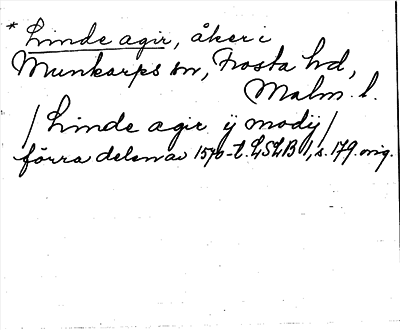 * Linde agir, åker i
Munkarps sn, Frosta hd,
Malm. l.
/Linde agir ÿ modÿ/
förra delen av 1570-t. LSLB 1, s. 179. orig.